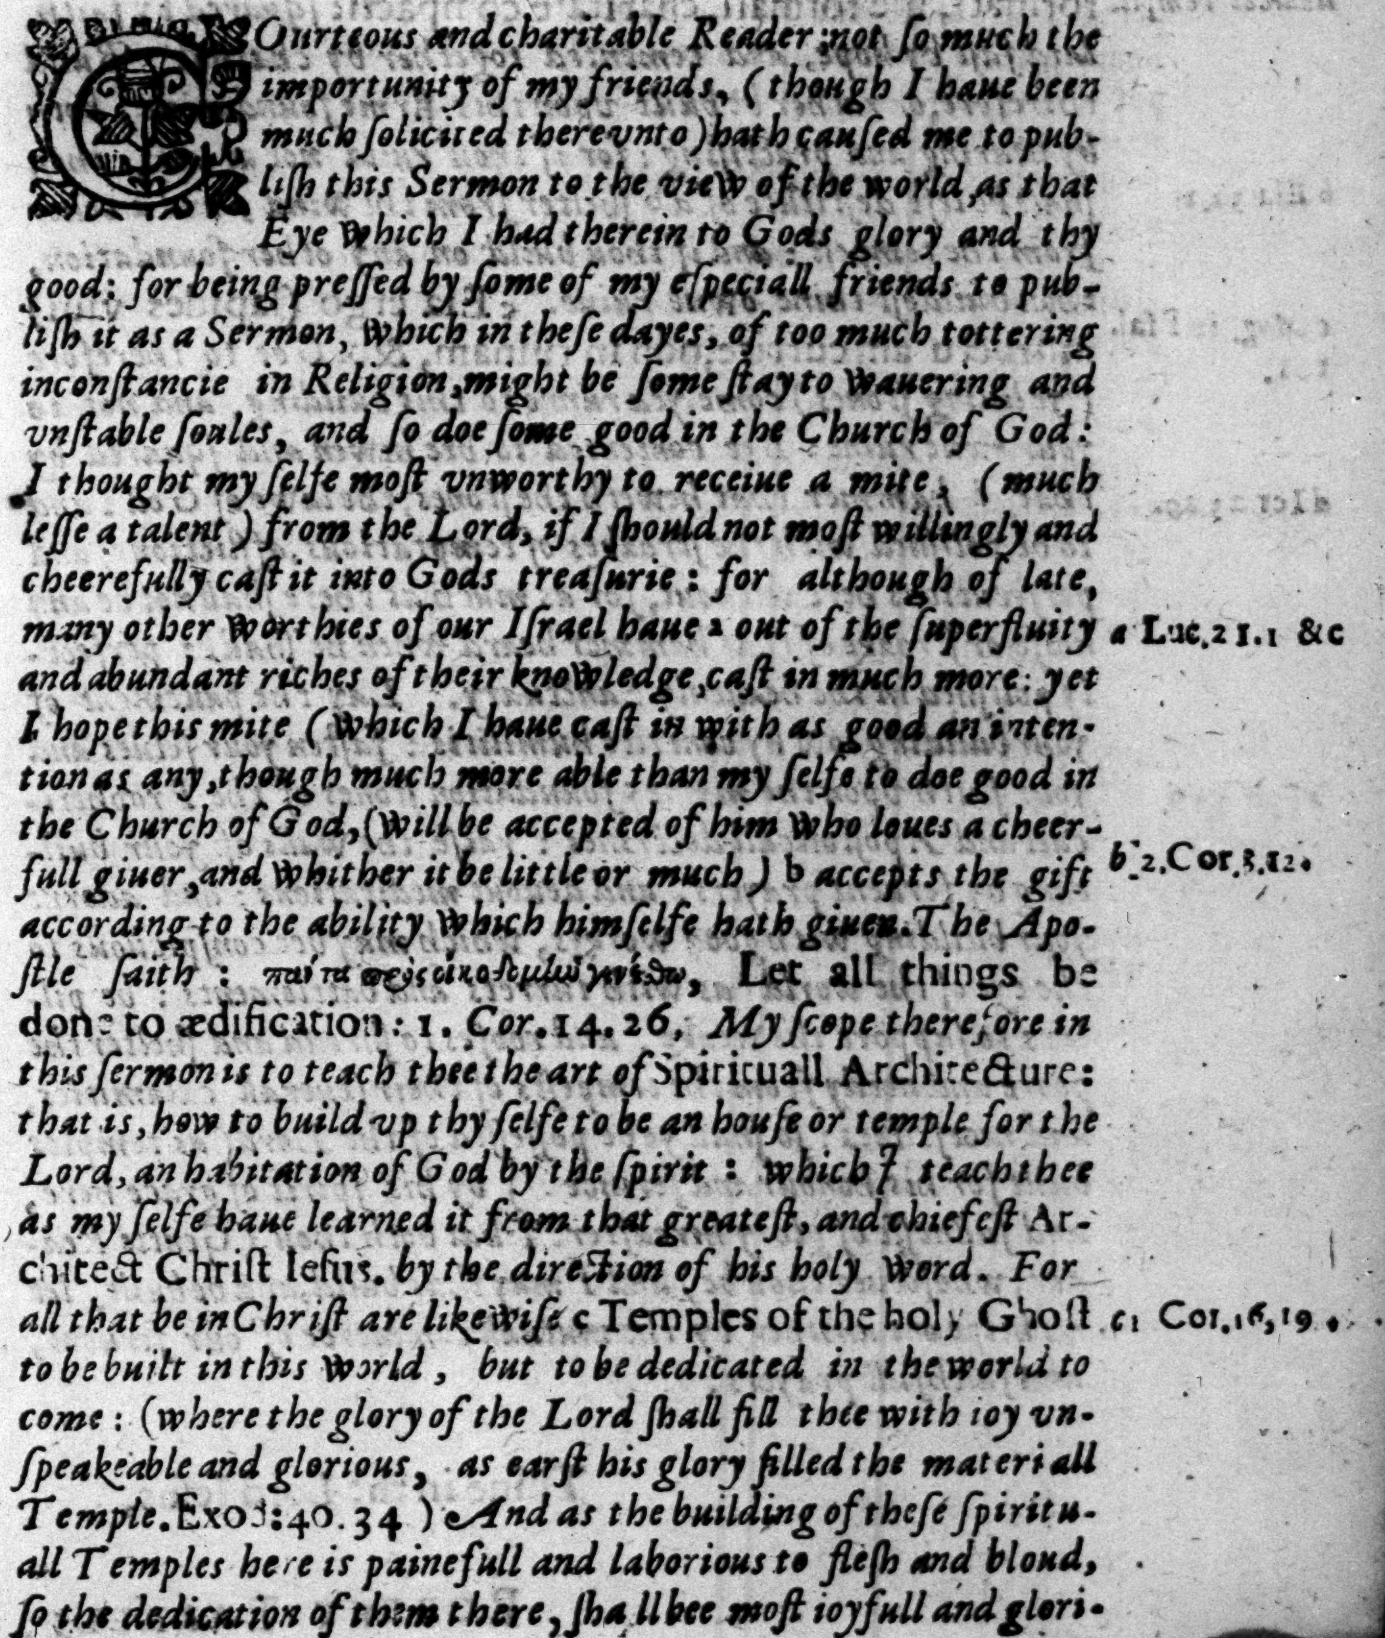 COurteous and charitable Reader, not ſo much the
importunity of my friends, (though I haue been
much ſolicited therevnto) hath cauſed me to pub-
liſh this Sermon to the view of the world, as that
Eye which I had therein to Gods glory and thy
good: for being preſſed by ſome of my eſpeciall friends to pub-
liſh it as a Sermon, which in theſe dayes, of too much tottering
inconſtancie in Religion, might be ſome ſtay to wauering and
vnſtable ſoules, and ſo doe ſome good in the Church of God:
I thought my ſelfe moſt vnworthy to receiue a mite, (much
leſſe a talent) from the Lord, if I ſhould not moſt willingly and
cheerefully caſt it into Gods treaſurie: for although of late,
many other worthies of our Iſrael haue a out of the ſuperfluity
a Luc.21.1 &c
and abundant riches of their knowledge, caſt in much more: yet
I hope this mite (which I haue caſt in with as good an inten-
tion as any, though much more able than my ſelfe to doe good in
the Church of God, (will be accepted of him who loues a cheer-
full giuer, and whither it be little or much) b accepts the gift
b 2.Cor.8.12.
according to the ability which himſelfe hath giuen. The Apo-
ſtle ſaith: πάντα πρὸς οἰκοδομὴν γινέσθω, Let all things be
done to ædification: 1. Cor. 14. 26, My ſcope therefore in
this ſermon is to teach thee the art of Spirituall Architecture:
that is, how to build vp thy ſelfe to be an houſe or temple for the
Lord, an habitation of God by the ſpirit: which I teach thee
as my ſelfe haue learned it from that greateſt, and chiefeſt Ar-
chitect Chriſt Ieſus. by the direction of his holy word. For
all that be in Chriſt are likewiſe c Temples of the holy Ghoſt
c1 Cor.16,19.
to be built in this world, but to be dedicated in the world to
come: (where the glory of the Lord ſhall fill thee with ioy vn-
ſpeakeable and glorious, as earſt his glory filled the materiall
Temple. Exod: 40. 34) And as the building of theſe ſpiritu-
all Temples here is painefull and laborious to fleſh and bloud,
ſo the dedication of them there, ſhall bee moſt ioyfull and glori-